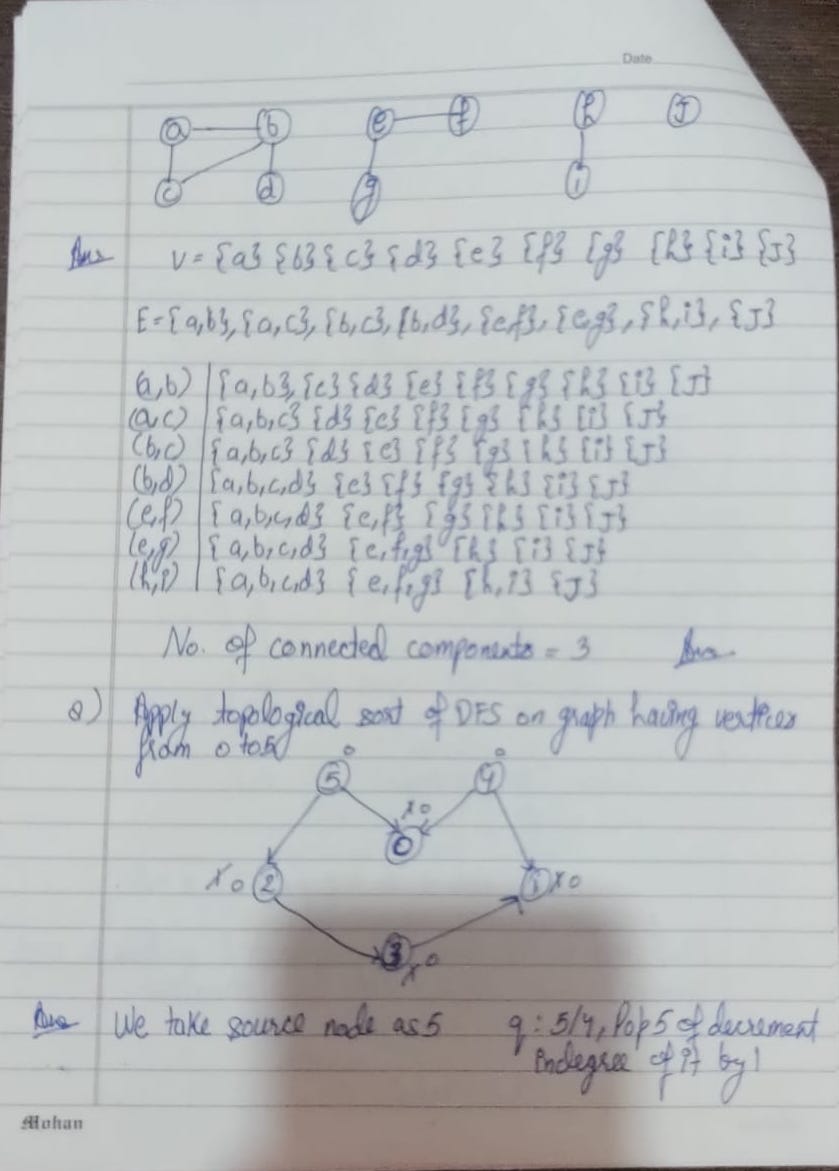 Date
a b e f h J
c d g i
Ans V = {a} {b} {c} {d} {e} {f} {g} {h} {i} {J}
E = {a,b}, {a,c}, {b,c}, {b,d}, {e,f}, {e,g}, {h,i}, {J}
(a,b) | {a,b}, {c} {d} {e} {f} {g} {h} {i} {J}
(a,c) | {a,b,c} {d} {e} {f} {g} {h} {i} {J}
(b,c) | {a,b,c} {d} {e} {f} {g} {h} {i} {J}
(b,d) | {a,b,c,d} {e} {f} {g} {h} {i} {J}
(e,f) | {a,b,c,d} {e,f} {g} {h} {i} {J}
(e,g) | {a,b,c,d} {e,f,g} {h} {i} {J}
(h,i) | {a,b,c,d} {e,f,g} {h,i} {J}
No. of connected components = 3 Ans
Q) Apply topological sort of DFS on graph having vertices
from 0 to 5
0 0
5 4
x0
0
x0 2 1 x0
3
x0
Ans We take source node as 5 q : 5/4, Pop 5 & decrement
indegree of it by 1
Mohan